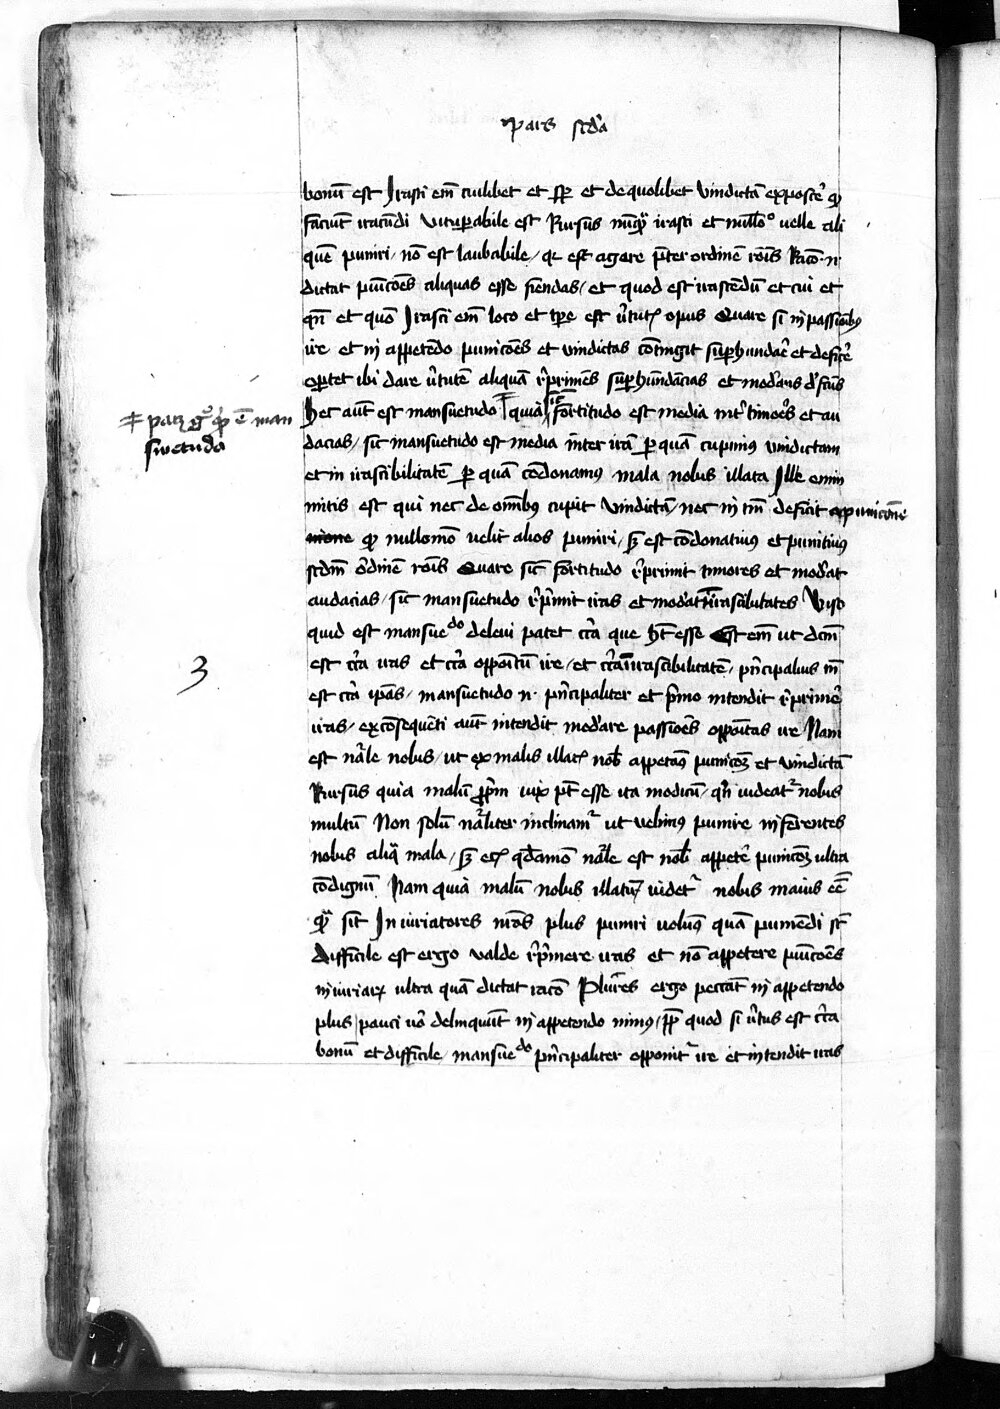 Pars scda
bonū est Irasci em̄ cuilibet et sp̄ et de quolibet vindictā exposcē qd
faciūt iracūdi vitupabile est Rursus nūqȝ irasci et nullo° uelle ali
quē puniri / nō est laudabile / qr est agere pter ordinē rōis Racō n̄
dictat pūicōes aliquas esse fiendas / et quod est irascēdū et cui et
qn̄ et quō Irasci em̄ loco et tpe est v̄tutꝭ opus Quare si in passioībus
ire et in appetēdo punicōes et vindictas cōtingit suphundaē et deficē
oportet ibi dare v̄tutē aliquā rp̄rimēs suphundācias et modāns dfcūs
hec aūt est mansuetudo quia sic fortitudo est media int̄ timoēs et au
dacias / sic mansuetudo est media inter irā p quā cupimus vindictam
et in irascibilitatē p quā cōdonamus mala nobis illata Ille enim
mitis est qui nec de om̄ibus cupit vindictā / nec in tm̄ deficit a punicōne
qd nullomō velit alios puniri / sȝ est cōdonatiuus et punitiuus
scdm̄ ordinē rōis Quare sic fortitudo rp̄rimit timores et modat
audacias / sic mansuetudo rp̄mit iras et modat irascibilitates Viso
quid est mansuedo deleui patet cc̄a que ht̄ esse Est em̄ ut dcm̄
est cc̄a iras et cc̄a oppoītū ire / et cc̄a irascibilitatē / pn̄cipalius tn̄
est cc̄a ipas / mansuetudo n̄ pn̄cipaliter et pmo intendit rp̄rimē
iras / ex cōsequēti aūt intendit modare passioēs oppoītas ire Nam
est nāle nobis / ut ex malis illatꝭ nob appetas punicōȝ et vindictā
Rursus quia malū ppm vix pt̄ esse ita modicū / qn̄ videat nobis
multū Non solū nāliter inclinam ut velimus punire inferentes
nobis aliqȝ mala / sȝ ecꝭ qdamō nāle est nob appetē punicōȝ ultra
cōdignū Nam quia malū nobis illatū videt nobis maius eē
qȝ sit In iuriatores nr̄os plus puniri volum̄ quā puniendi st̄
Difficile est ergo valde rp̄mere iras et nō appetere pūicōes
iniuriaꝝ ultra quā dictat racō Plures ergo peccāt in appetendo
plus / pauci vo delinquūt in appetendo minus / pp quod si v̄tus est cc̄a
bonū et difficile / mansuedo pn̄cipaliter opponit ire et intendit iras
≠ patȝ g° qd ē man
suetudo
3